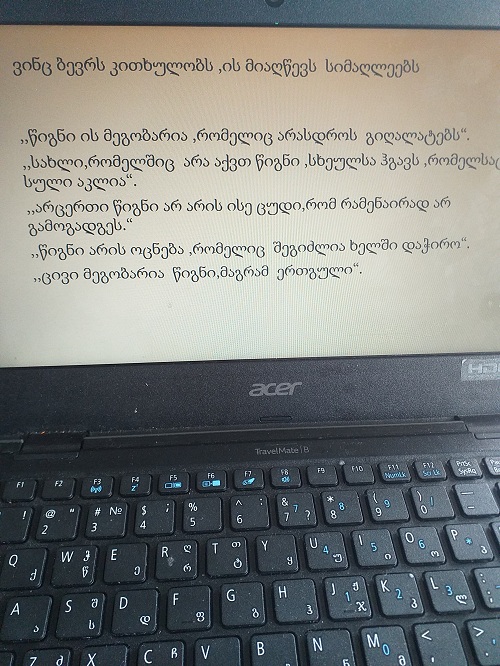 ვინც ბევრს კითხულობს ,ის მიაღწევს სიმაღლეებს
,,წიგნი ის მეგობარია ,რომელიც არასდროს გიღალატებს“.
,,სახლი,რომელშიც არა აქვთ წიგნი ,სხეულსა ჰგავს ,რომელსაც
სული აკლია“.
,,არცერთი წიგნი არ არის ისე ცუდი,რომ რამენაირად არ
გამოგადგეს.“
,,წიგნი არის ოცნება ,რომელიც შეგიძლია ხელში დაჭირო“.
,,ცივი მეგობარია წიგნი,მაგრამ ერთგული“.
acer
TravelMate B
F1 F2 F3 F4 F5 F6 F7 F8 F9 F10 F11 NumLk F12 Scr Lk PrtSc SysRq
! @ 2 " # 3 № $ 4 ; % 5 ^ 6 : & 7 ? 7 * 8 8 ( 9 9 ) 0 /
Q ქ W ჭ წ E ე R ღ რ T თ ტ Y ყ U 4 უ I 5 ი O 6 ო P * პ
A ა S შ ს D დ F ფ G გ H ჰ J ჟ 1 ჯ K 2 კ L 3 ლ
X C ჩ V B N M 0 < >